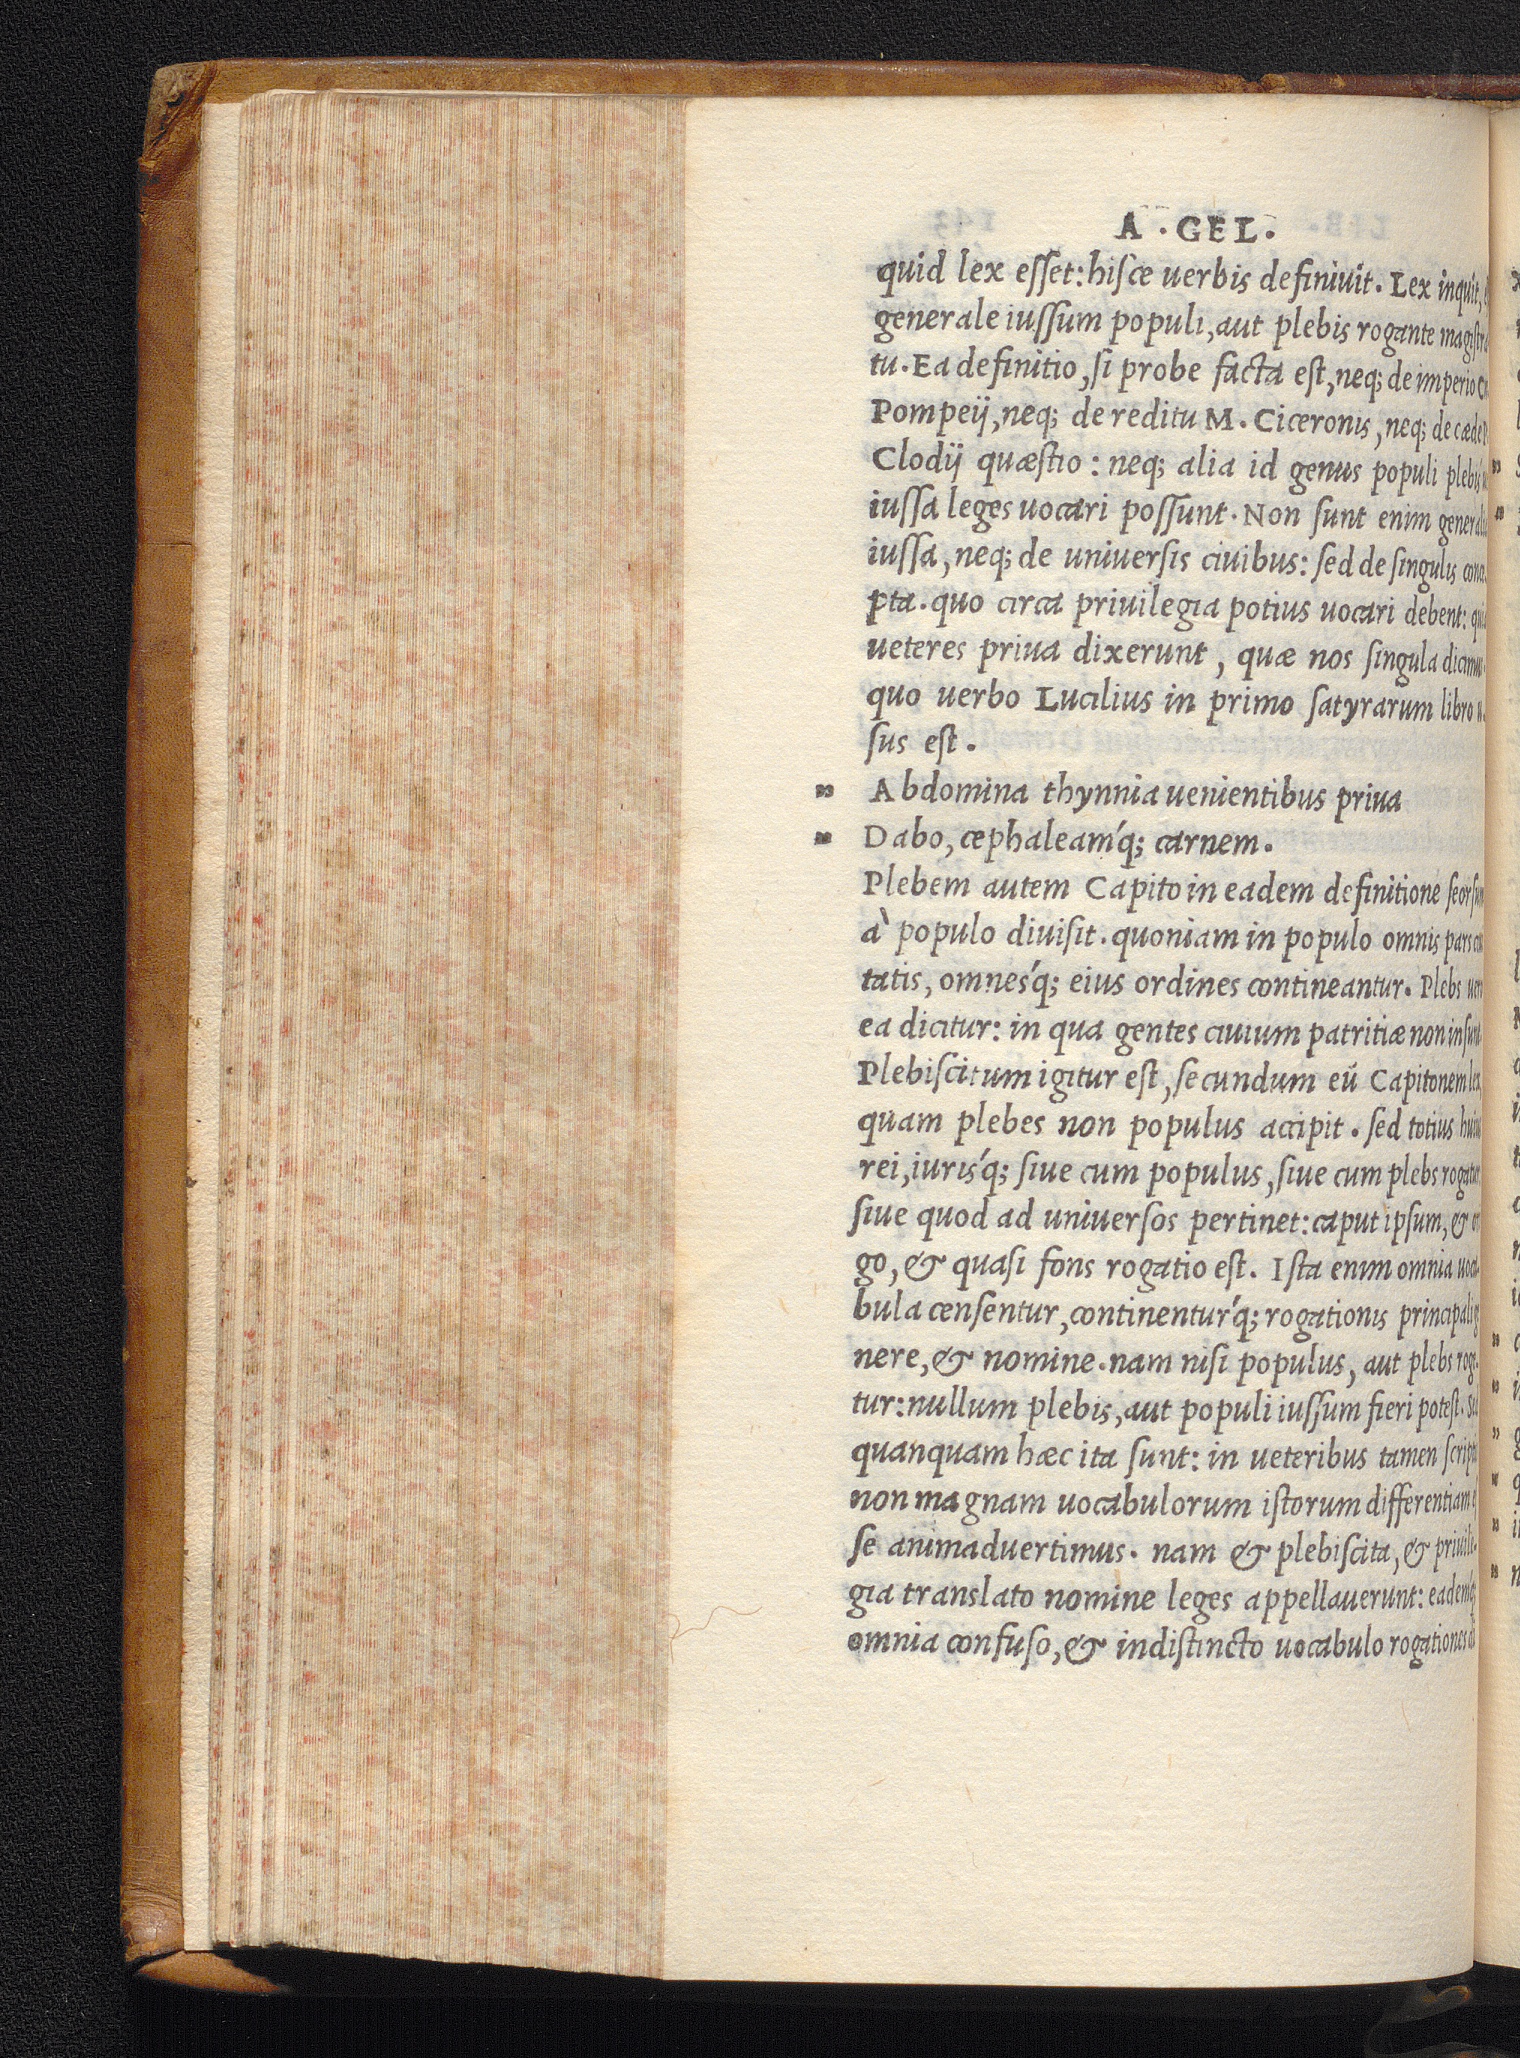 A . GEL.
quid lex eſſet: hiſce uerbis definiuit. Lex inquit,
generale iuſſum populi, aut plebis rogante magiſtra
tu. Ea definitio, ſi probe facta eſt, neq; de imperio
Pompeij, neq; de reditu M. Ciceronis, neq; de cæde
Clodij quæſtio: neq; alia id genus populi plebiś
iuſſa leges uocari poſſunt. Non ſunt enim generalia
iuſſa, neq; de uniuerſis ciuibus: ſed de ſingulis conce
pta. quo circa priuilegia potius uocari debent: quia
ueteres priua dixerunt, quæ nos ſingula dicimus
quo uerbo Lucilius in primo ſatyrarum libro u
ſus eſt.
" Abdomina thynnia uenientibus priua
" Dabo, cephaleamq́; carnem.
Plebem autem Capito in eadem definitione ſeorſum
à populo diuiſit. quoniam in populo omnis pars ciui
tatis, omnesq́; eius ordines contineantur. Plebs uero
ea dicitur: in qua gentes ciuium patritiæ non inſunt
Plebiſcitum igitur eſt, ſecundum eū Capitonem lex,
quam plebes non populus accipit. ſed totius huius
rei, iurisq́; ſiue cum populus, ſiue cum plebs rogatur
ſiue quod ad uniuerſos pertinet: caput ipſum, & ori
go, & quaſi fons rogatio eſt. Iſta enim omnia uoca
bula cenſentur, continenturq́; rogationis principali ge
nere, & nomine. nam niſi populus, aut plebs roge
tur: nullum plebis, aut populi iuſſum fieri poteſt. Sed
quanquam hæc ita ſunt: in ueteribus tamen ſcriptis
non magnam uocabulorum iſtorum differentiam eſ
ſe animaduertimus. nam & plebiſcita, & priuile-
gia translato nomine leges appellauerunt: eademq́;
omnia confuſo, & indiſtincto uocabulo rogationes